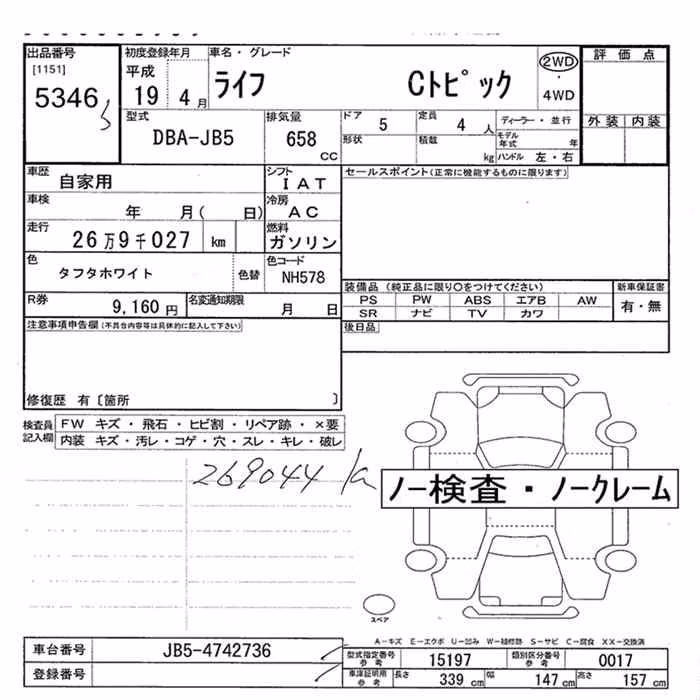 出品番号
[1151]
5346
初度登録年月
平成
19 4 月
車名・グレード
ライフ Cトピック
2WD
・
4WD
評価点
外装 内装
型式
DBA-JB5
排気量
658
CC
ドア 5
定員 4 人
ディーラー・並行
形状
積載 kg
モデル年式 年
ハンドル 左・右
車歴 自家用
シフト
IAT
セールスポイント(正常に機能するものに限ります)
車検 年 月( 日)
冷房
AC
走行
26万9千027 km
燃料
ガソリン
色
タフタホワイト
色替
色コード
NH578
装備品 (純正品に限り○をつけてください)
新車保証書
PS PW ABS エアB AW
有・無
SR ナビ TV カワ
R券
9,160 円
名変通知期限
月 日
後日品
注意事項申告欄(不具合内容等は具体的に記入して下さい)
修復歴 有〔箇所 〕
検査員記入欄
FW キズ・飛石・ヒビ割・リペア跡・×要
内装 キズ・汚レ・コゲ・穴・スレ・キレ・破レ
269044
ノー検査・ノークレーム
スペア
A-キズ E-エクボ U-凹み W-補修跡 S-サビ C-腐食 XX-交換済
車台番号 JB5-4742736
登録番号
型式指定番号 参考 15197
類別区分番号 参考 0017
車庫証明用 参考 長さ 339 cm 幅 147 cm 高さ 157 cm